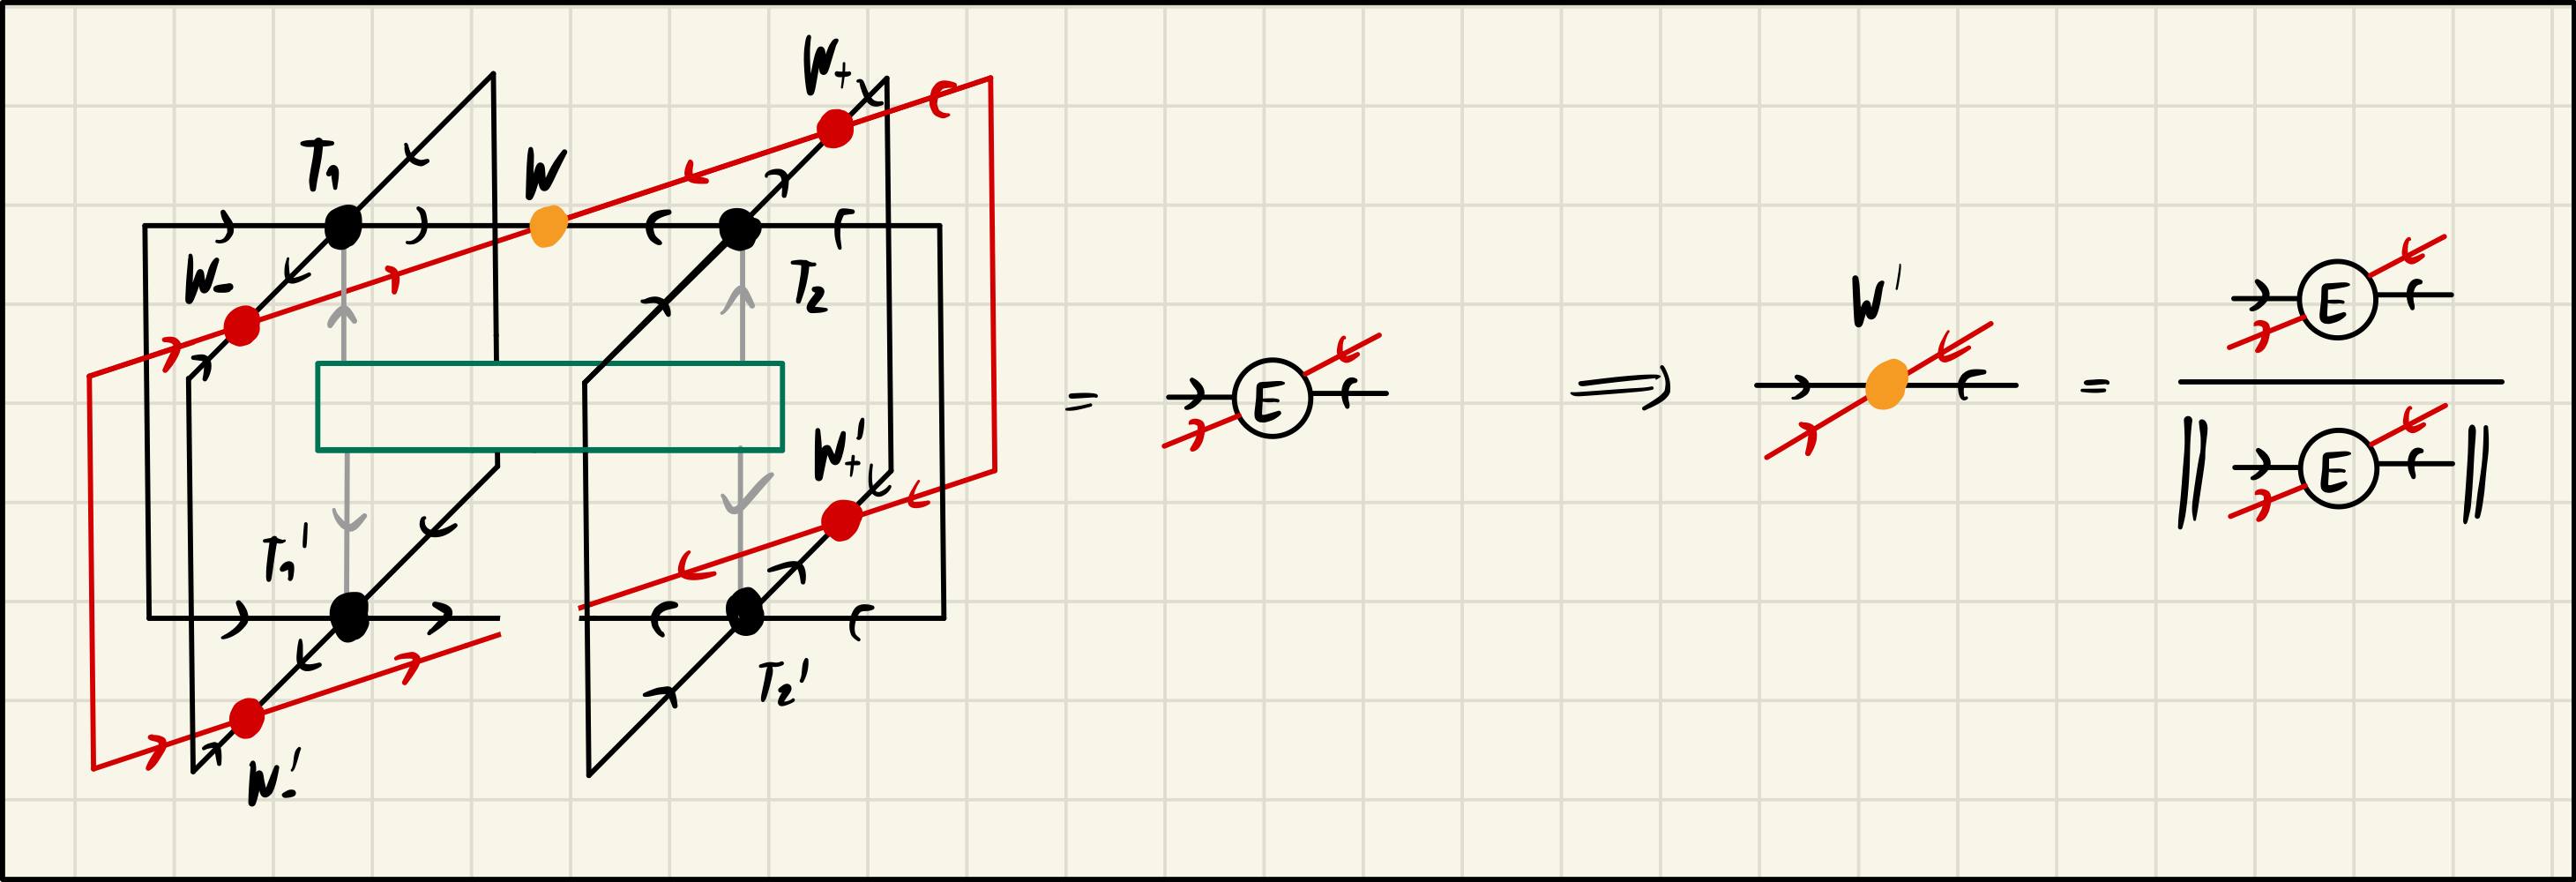 W₊
T₁
W
W₋
T₂
W₊'
T₁'
T₂'
W₋'
= E ⟹ W' = E
‖ E ‖